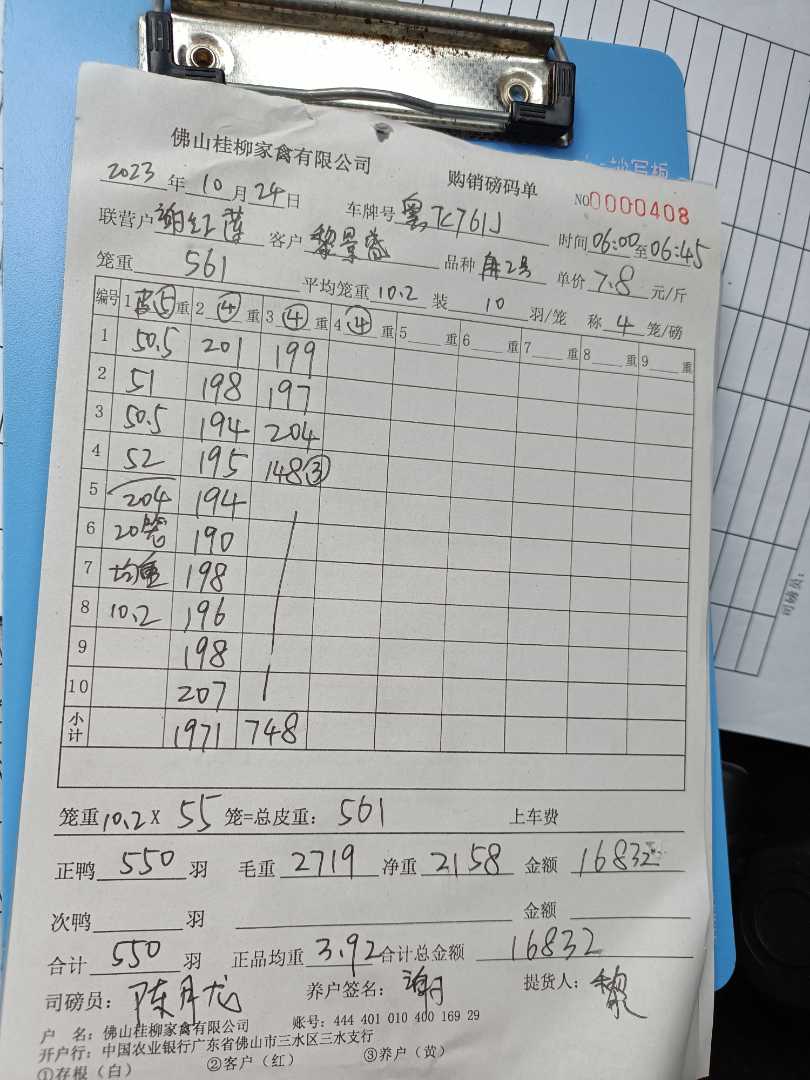 佛山桂柳家禽有限公司 购销磅码单 NO0000408
2023年10月24日 车牌号 粤TC761J 时间06:00至06:45
联营户 谢红莲 客户 黎景 品种 2号 单价7.8元/斤
笼重 561 平均笼重10.2 装 10 羽/笼 称 4 笼/磅
编号 1 皮⑤重 2 ④ 重 3 ④ 重 4 ④ 重 5 重 6 重 7 重 8 重 9 重
1 50.5 201 199
2 51 198 197
3 50.5 194 204
4 52 195 148③
5 204 194
6 20笼 190
7 均重 198
8 10.2 196
9 198
10 207
小计 1971 748
笼重10.2X 55 笼=总皮重: 561 上车费
正鸭 550 羽 毛重 2719 净重 2158 金额 16832
次鸭 羽 金额
合计 550 羽 正品均重 3.92 合计总金额 16832
司磅员: 陈月龙 养户签名: 谢 提货人: 黎
户 名: 佛山桂柳家禽有限公司 账号: 444 401 010 400 169 29
开户行: 中国农业银行广东省佛山市三水区三水支行
①存根(白) ②客户(红) ③养户(黄)
司磅员: